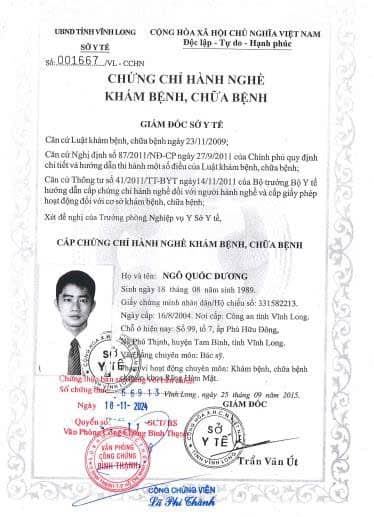 UBND TỈNH VĨNH LONG
SỞ Y TẾ
Số: 001667 /VL - CCHN
CỘNG HÒA XÃ HỘI CHỦ NGHĨA VIỆT NAM
Độc lập - Tự do - Hạnh phúc
CHỨNG CHỈ HÀNH NGHỀ
KHÁM BỆNH, CHỮA BỆNH
GIÁM ĐỐC SỞ Y TẾ
Căn cứ Luật khám bệnh, chữa bệnh ngày 23/11/2009;
Căn cứ Nghị định số 87/2011/NĐ-CP ngày 27/9/2011 của Chính phủ quy định
chi tiết và hướng dẫn thi hành một số điều của Luật khám bệnh, chữa bệnh;
Căn cứ Thông tư số 41/2011/TT-BYT ngày 14/11/2011 của Bộ trưởng Bộ Y tế
hướng dẫn cấp chứng chỉ hành nghề đối với người hành nghề và cấp giấy phép
hoạt động đối với cơ sở khám bệnh, chữa bệnh;
Xét đề nghị của Trưởng phòng Nghiệp vụ Y Sở Y tế,
CẤP CHỨNG CHỈ HÀNH NGHỀ KHÁM BỆNH, CHỮA BỆNH
Họ và tên: NGÔ QUỐC DƯƠNG
Sinh ngày 18 tháng 08 năm sinh 1989.
Giấy chứng minh nhân dân/Hộ chiếu số: 331582213.
Ngày cấp: 16/8/2004. Nơi cấp: Công an tỉnh Vĩnh Long.
Chỗ ở hiện nay: Số 99, tổ 7, ấp Phú Hữu Đông,
Phú Thịnh, huyện Tam Bình, tỉnh Vĩnh Long.
Văn bằng chuyên môn: Bác sỹ.
Phạm vi hoạt động chuyên môn: Khám bệnh, chữa bệnh
khoa Răng Hàm Mặt.
SỞ
Y TẾ
Chứng thực bản sao đúng với bản chính
Số chứng thực 66913
Vĩnh Long, ngày 25 tháng 09 năm 2015.
Ngày 18-11-2024
GIÁM ĐỐC
Quyển số: SCT/BS
Văn Phòng Công Chứng Bình Thạnh
VĂN PHÒNG
CÔNG CHỨNG
BÌNH THẠNH
SỞ
Y TẾ
TỈNH VĨNH LONG
Trần Văn Út
CÔNG CHỨNG VIÊN
Lã Phi Thành